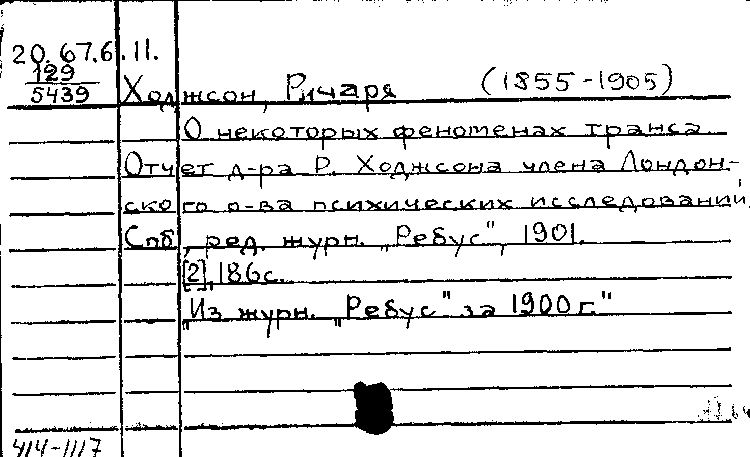 20.67.6.11.
129
5439
Ходжсон, Ричард (1855-1905)
О некоторых феноменах транса
Отчет д-ра Р. Ходжсона члена Лондон-
ского о-ва психических исследований
Спб, ред. журн. „Ребус", 1901.
[2], 186с.
„Из журн. „Ребус" за 1900 г."
414-1117